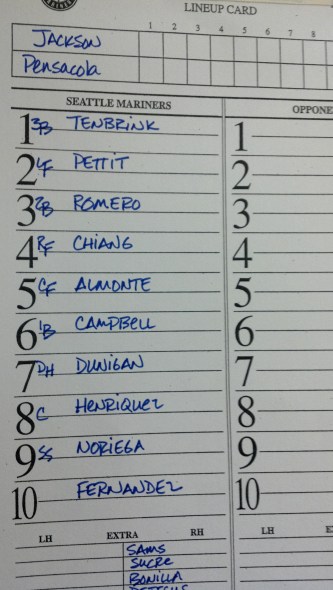 LINEUP CARD
1 2 3 4 5 6 7 8
JACKSON
Pensacola
SEATTLE MARINERS
OPPONE
1 3B TENBRINK
1
2 LF PETTIT
2
3 2B ROMERO
3
4 RF CHIANG
4
5 CF ALMONTE
5
6 1B CAMPBELL
6
7 DH DUNIGAN
7
8 C HENRIQUEZ
8
9 SS NORIEGA
9
10 FERNANDEZ
10
LH EXTRA RH
LH E
SAMS
SUCRE
BONILLA